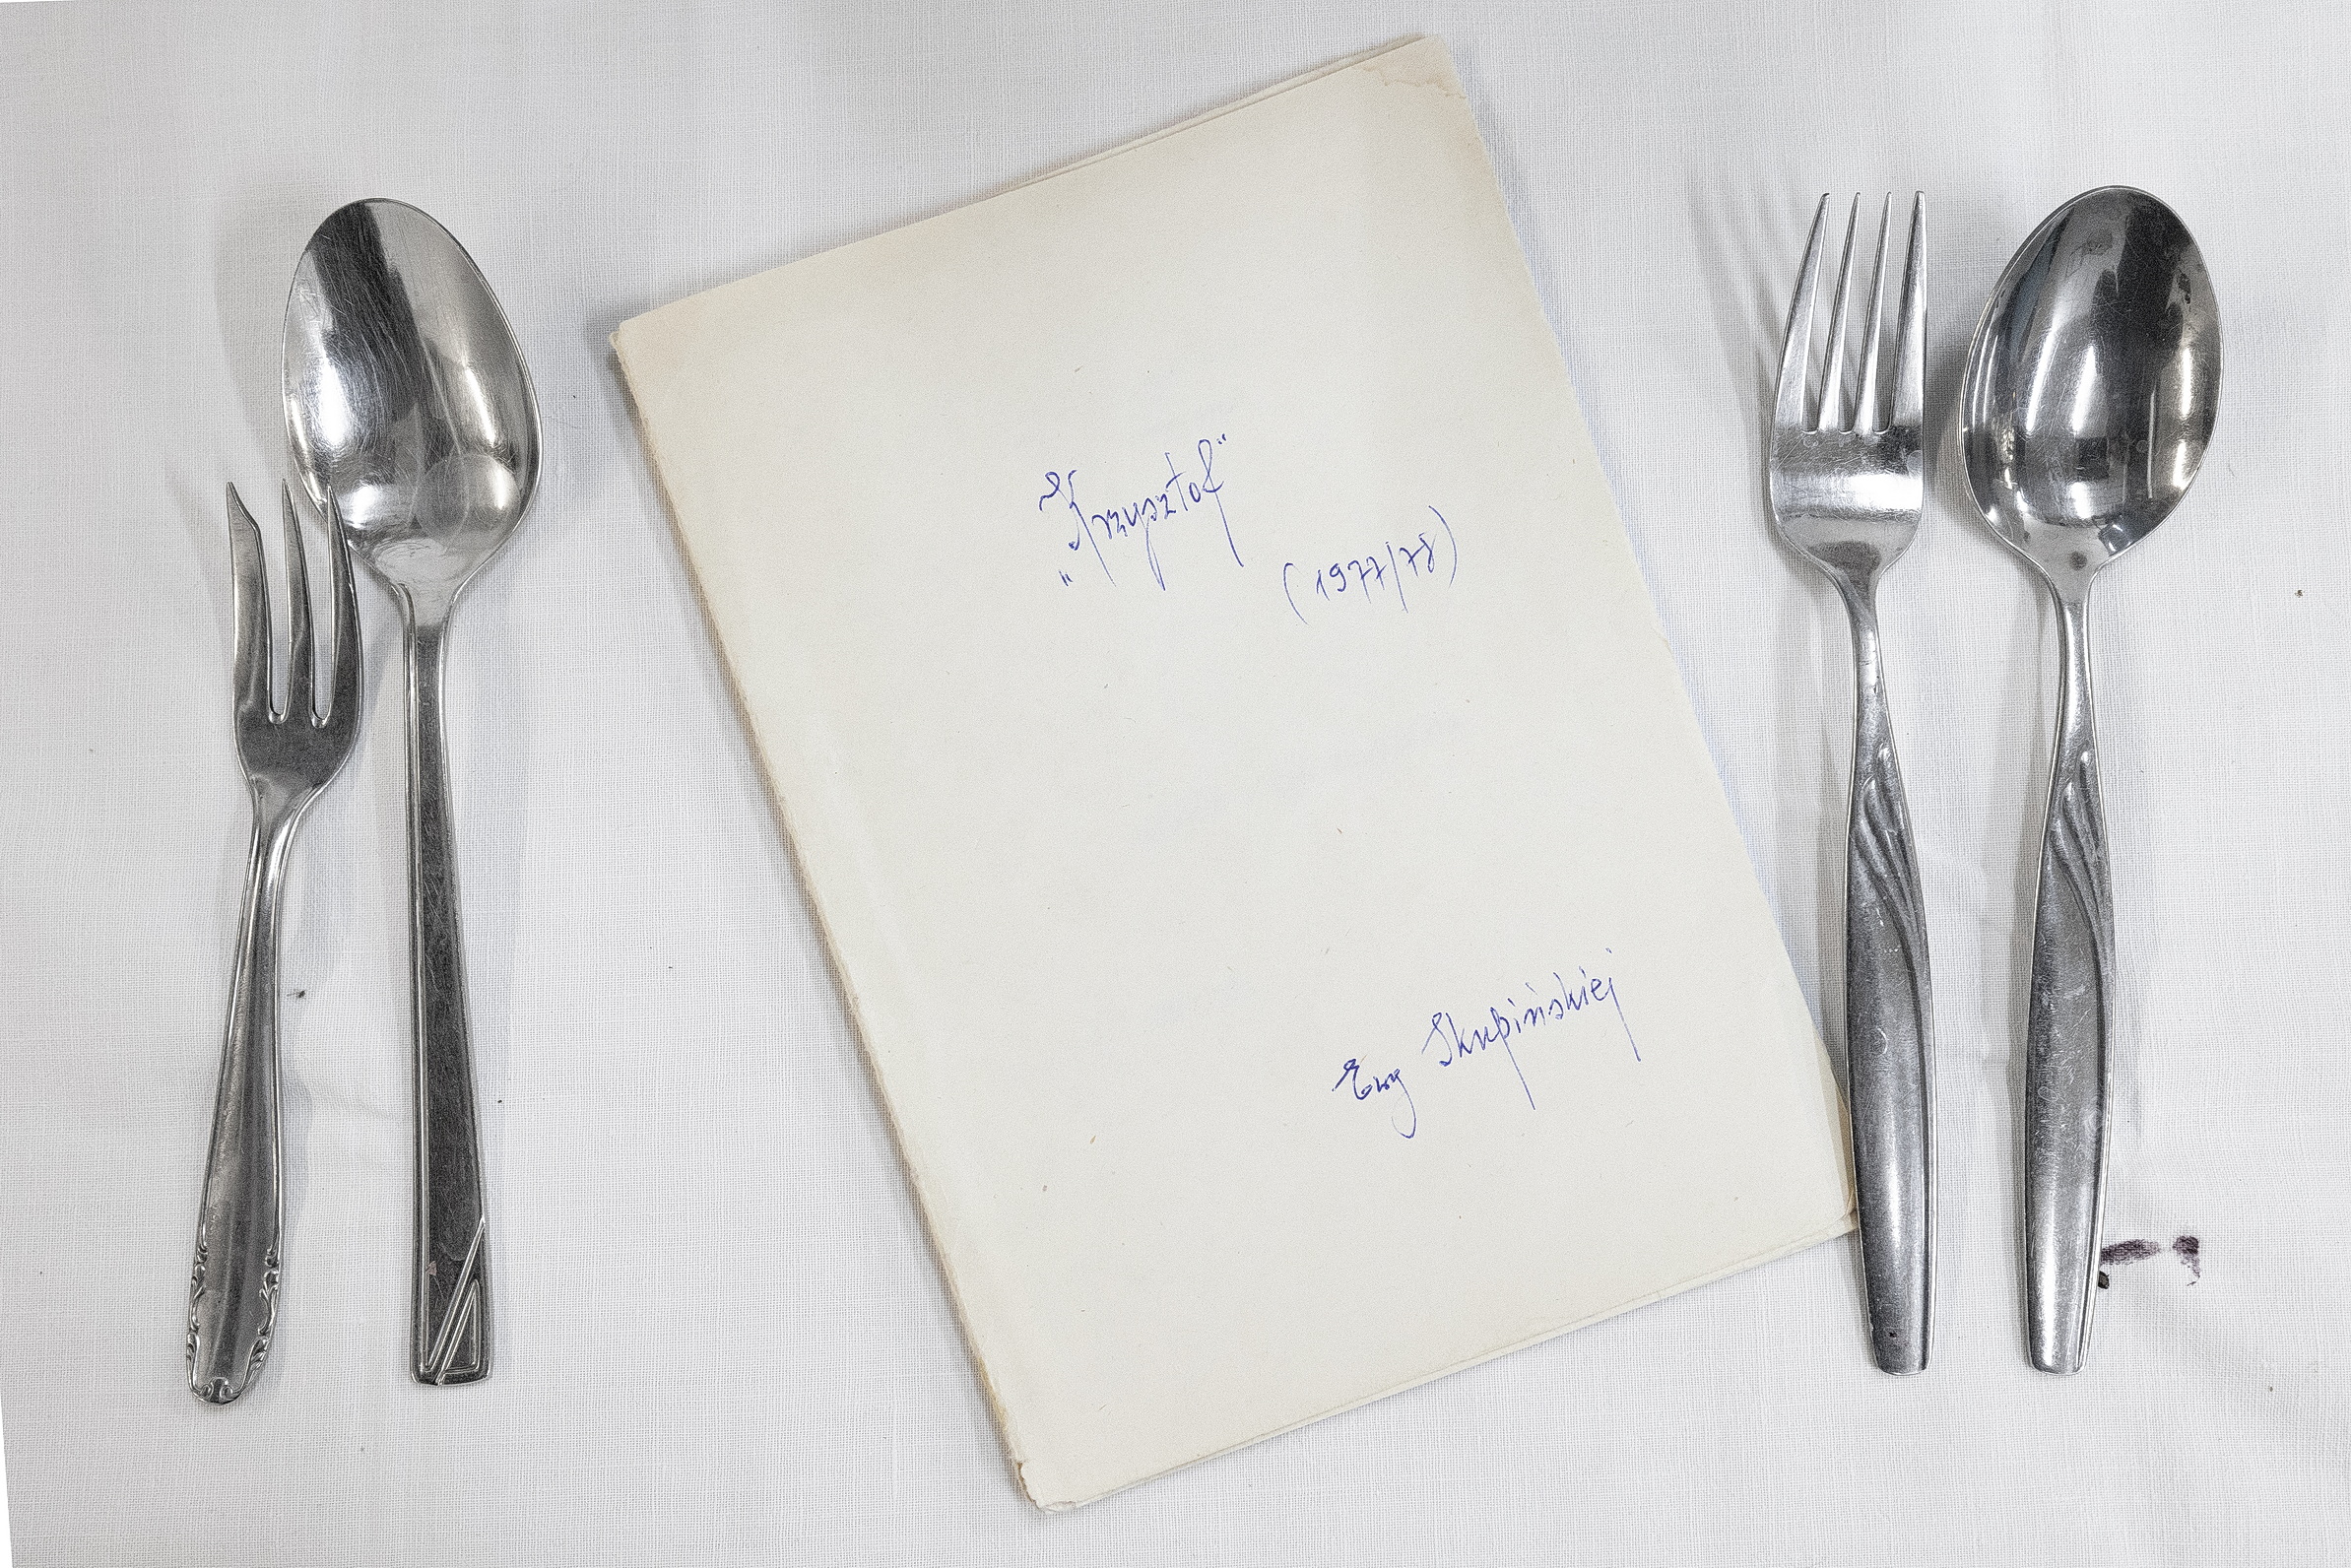 „Krzysztof"
(1977/78)
Ewy Skupińskiej